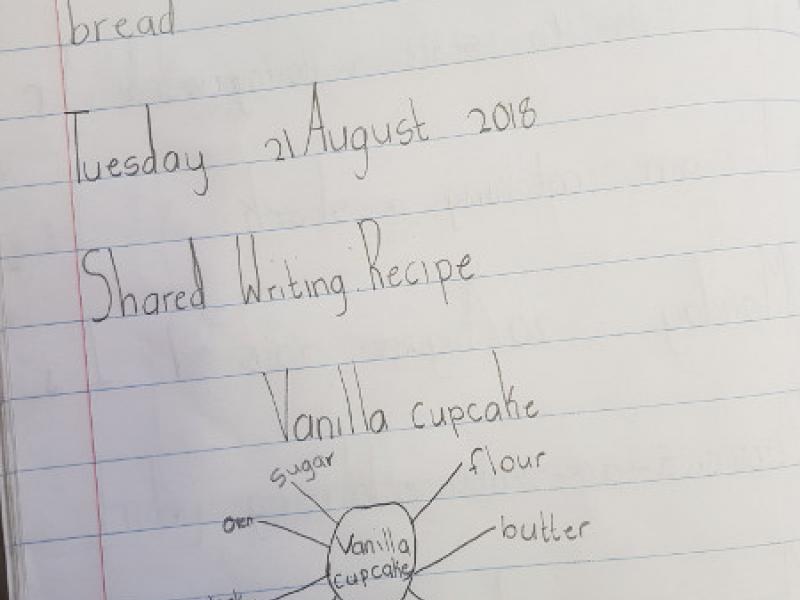 bread
Tuesday 21 August 2018
Shared Writing Recipe
Vanilla cupcake
sugar
flour
oven
butter
Vanilla
cupcake